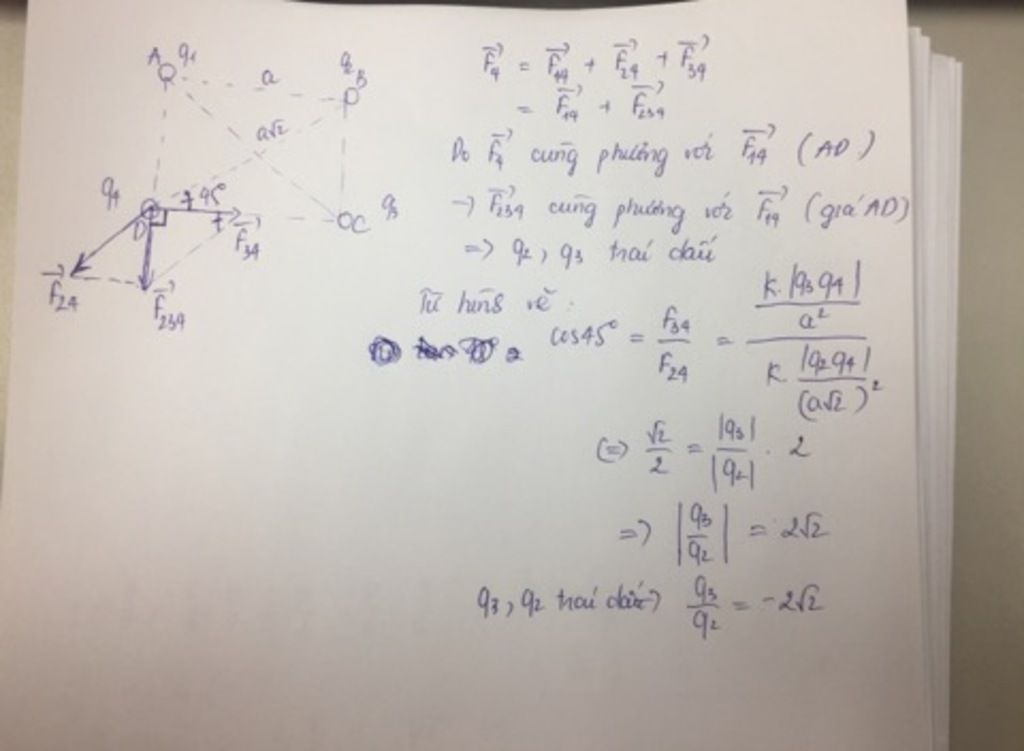 A q₁
a
q₂ B
a√2
q₄ 45°
D
F₃₄
q₃ C
F₂₄
F₂₃₄
F₄ = F₁₄ + F₂₄ + F₃₄
= F₁₄ + F₂₃₄
Do F₄ cùng phương với F₁₄ (AD)
→ F₂₃₄ cùng phương với F₁₄ (giá AD)
=> q₂, q₃ trái dấu
Từ hình vẽ:
cos45° = F₃₄/F₂₄ = (K.|q₃q₄|/a²)/(K.|q₂q₄|/(a√2)²)
(=) √2/2 = |q₃|/|q₂| . 2
=> |q₃/q₂| = 2√2
q₃, q₂ trái dấu → q₃/q₂ = -2√2